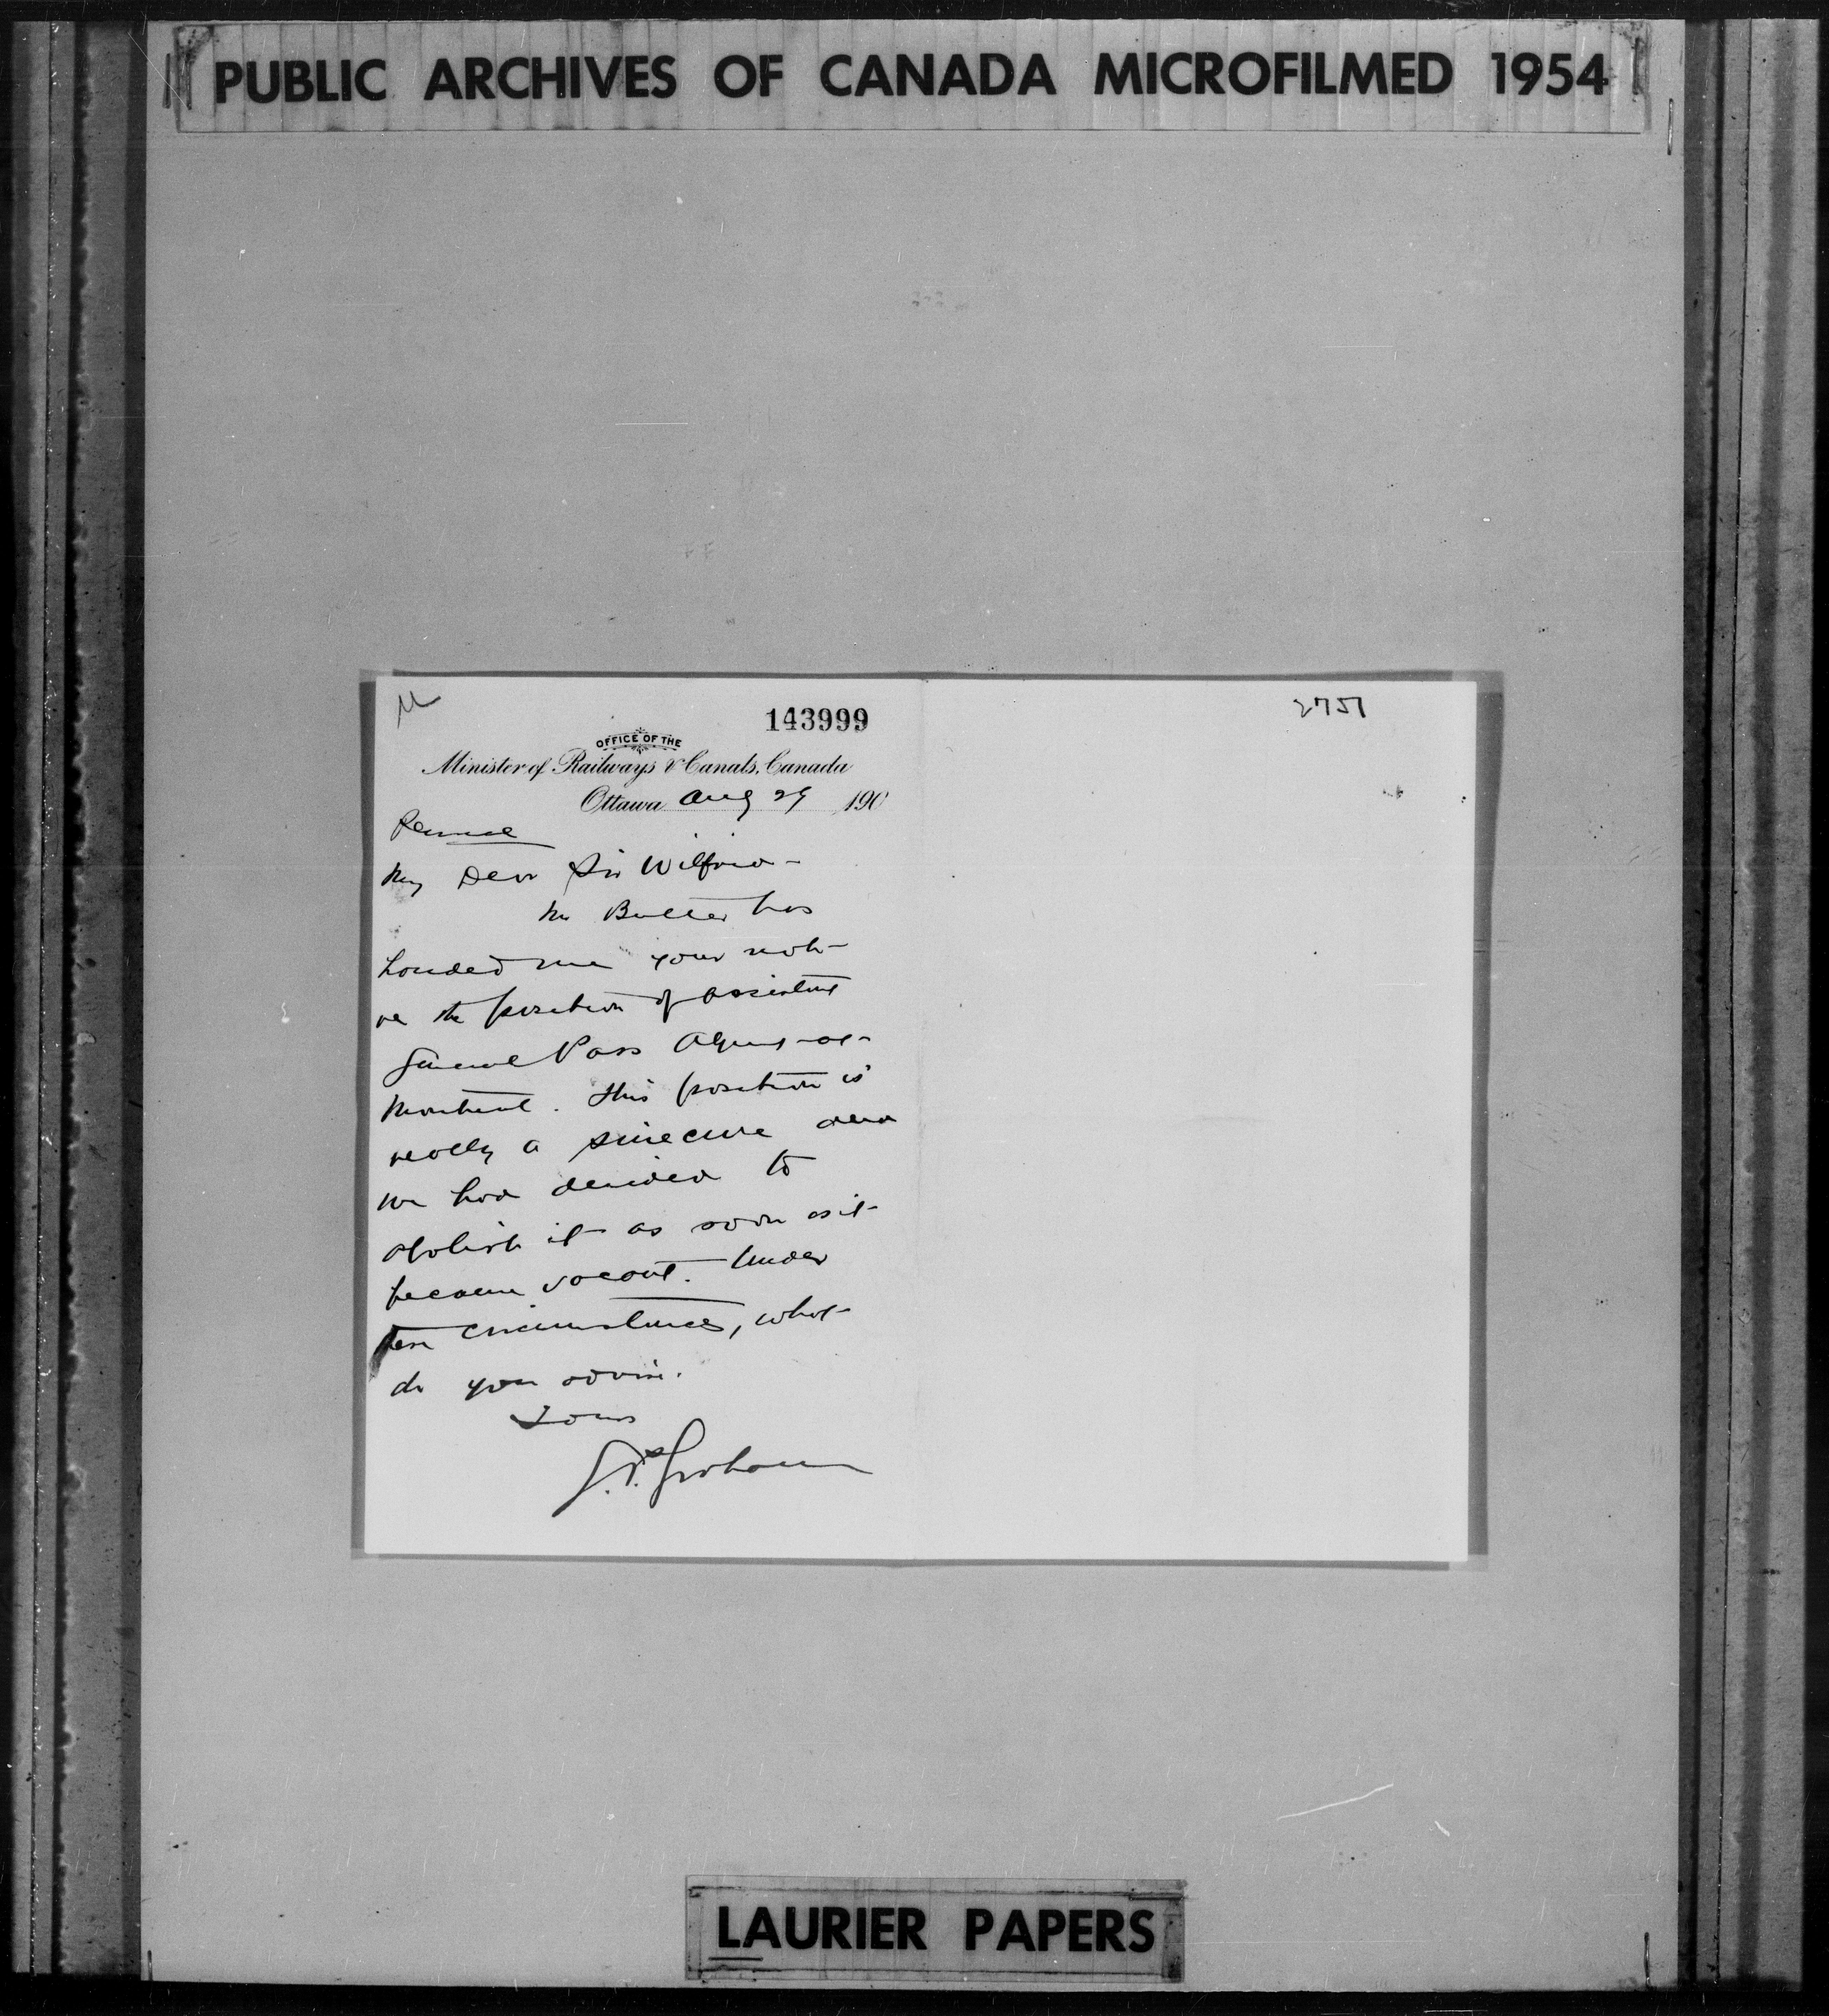 PUBLIC ARCHIVES OF CANADA MICROFILMED 1954
143999
2751
OFFICE OF THE
Minister of Railways & Canals, Canada
Ottawa Aug 29 190
Personal
My Dear Sir Wilfrid -
Mr Butler has
handed me your note
re the position of assistant
General Pass Agent at
Montreal. This position is
really a sinecure and
we had decided to
abolish it as soon as it
became vacant. Under
these circumstances, what
do you advise.
Yours
G.P. Graham
LAURIER PAPERS